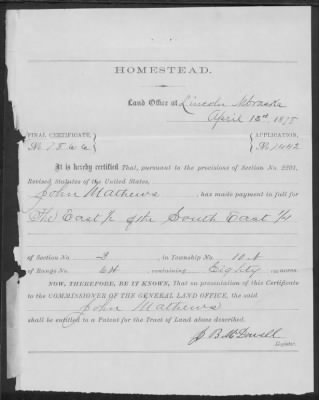 HOMESTEAD.
Land Office at Lincoln Nebraska
April 13th 1875
FINAL CERTIFICATE, APPLICATION,
No. No. 1442
It is hereby certified That, pursuant to the provisions of Section No. 2291,
Revised Statutes of the United States,
John Mathews has made payment in full for
The East ½ of the South East ¼
of Section No. 3 in Township No. 10 N
of Range No. containing Eighty acres.
NOW, THEREFORE, BE IT KNOWN, That on presentation of this Certificate
to the COMMISSIONER OF THE GENERAL LAND OFFICE, the said
John Mathews
shall be entitled to a Patent for the Tract of Land above described.
J B McDowell
Register.